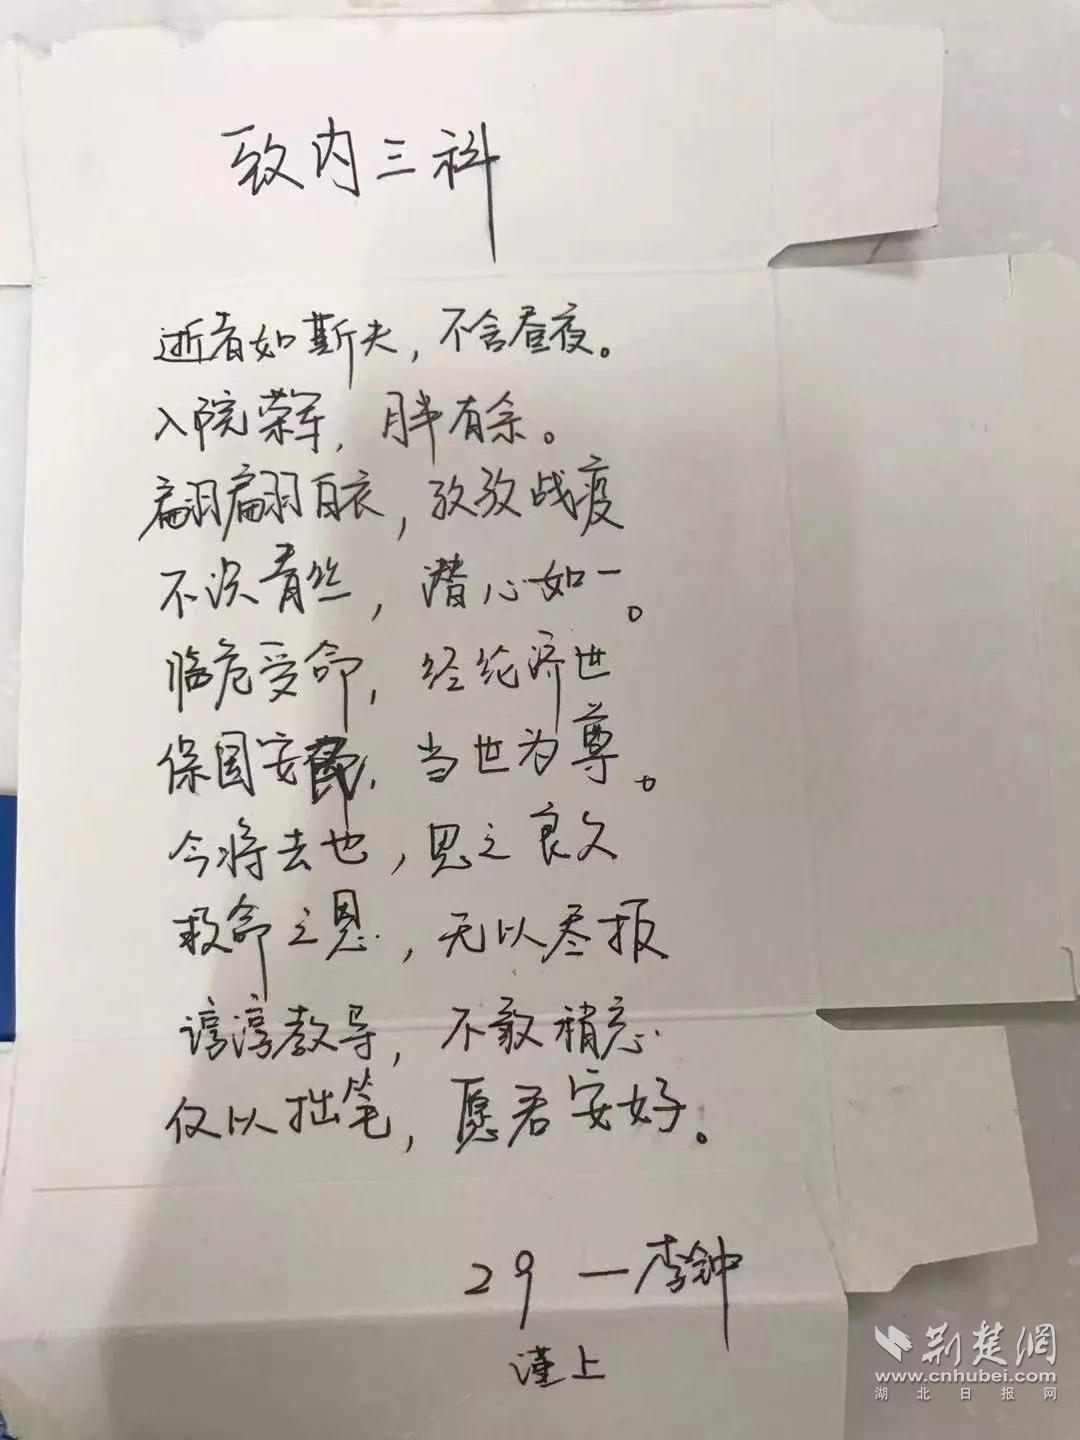 致内三科
逝者如斯夫，不舍昼夜。
入院荣军，月半有余。
翩翩白衣，孜孜战疫
不决青丝，潜心如一。
临危受命，经纶济世
保国安民，当世为尊。
今将去也，思之良久
救命之恩，无以尽报
谆谆教导，不敢稍忘.
仅以拙笔，愿君安好。
29 一李钟
谨上
荆楚网
www.cnhubei.com
湖北日报网